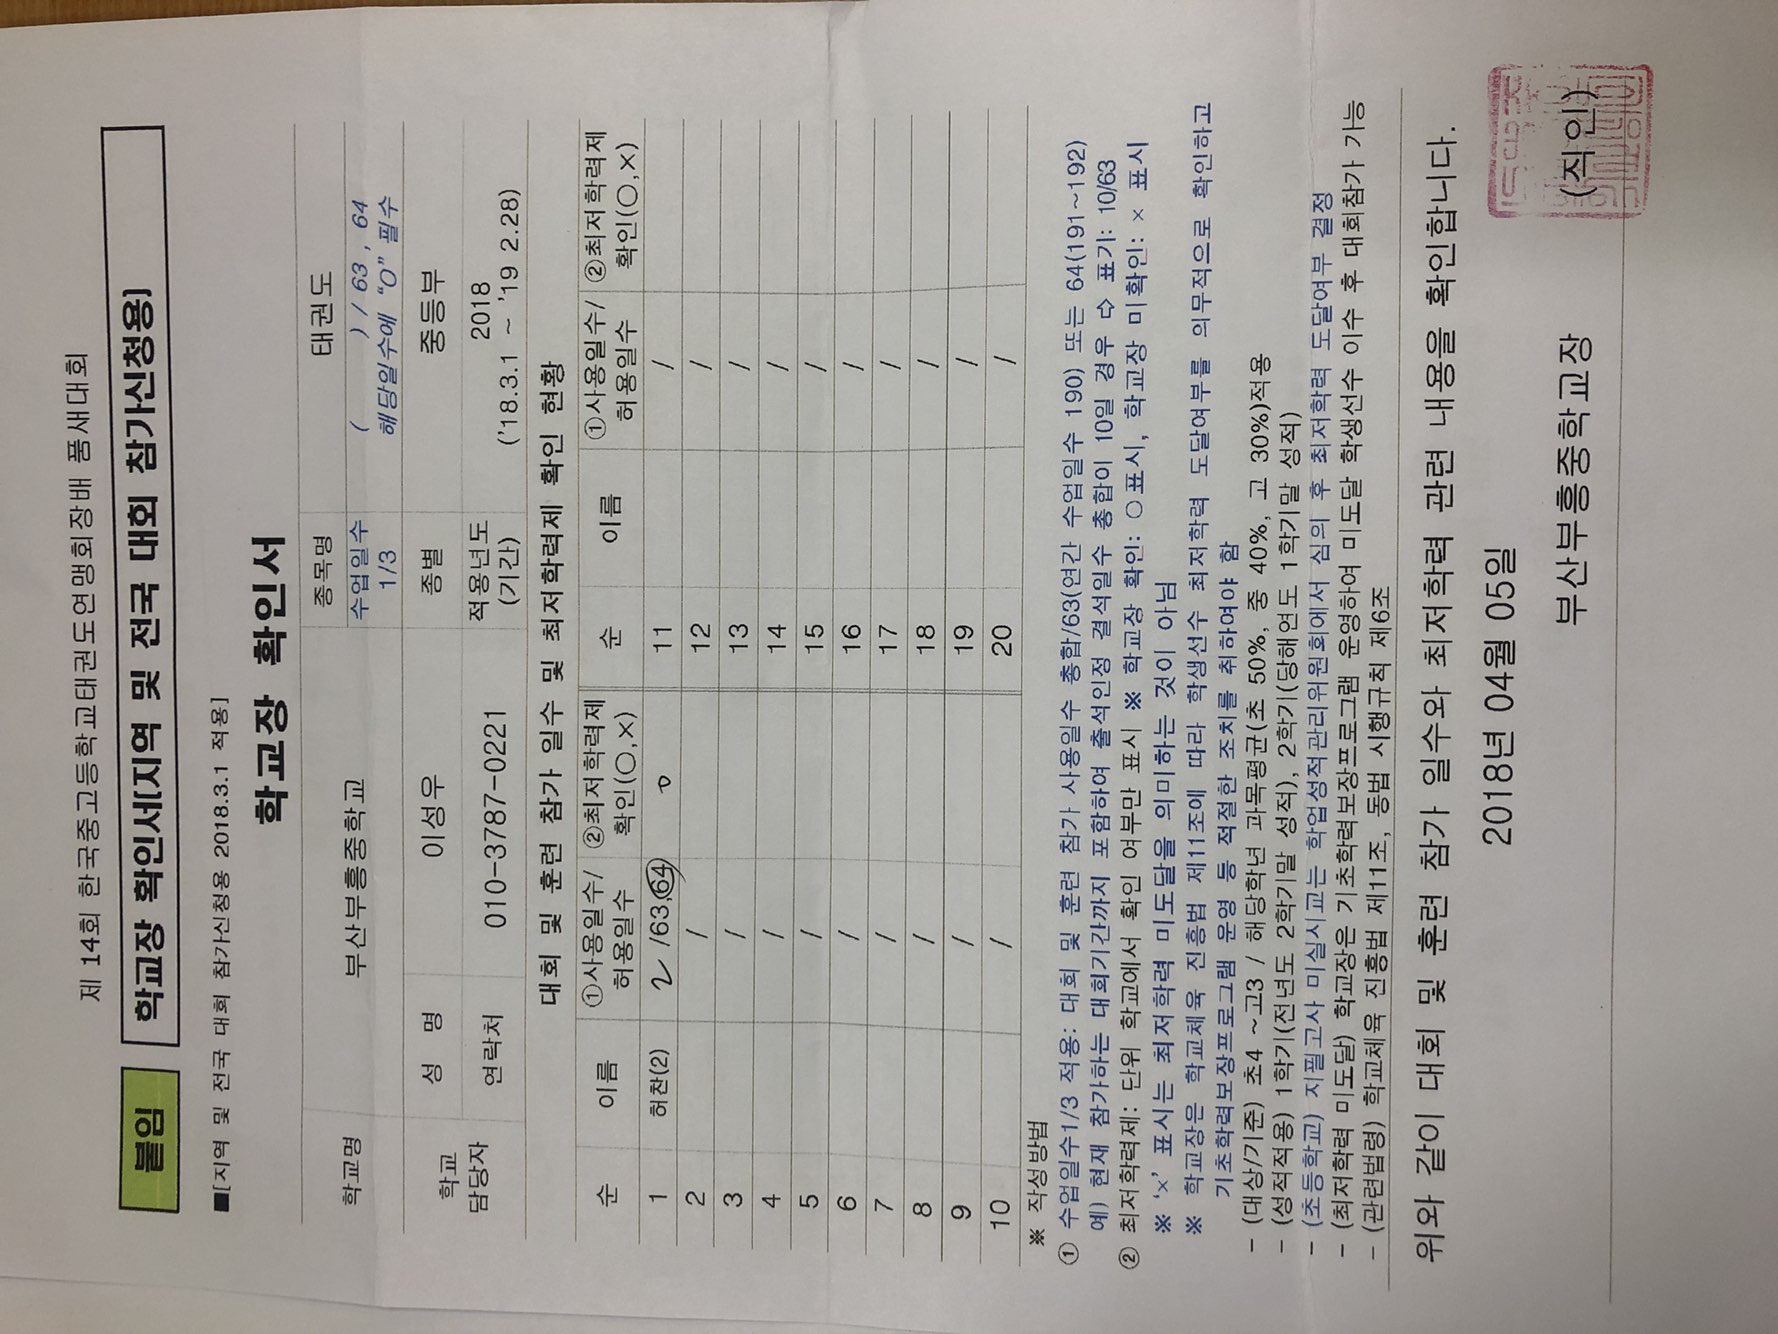 제 14회 한국중고등학교태권도연맹회장배 품새대회
붙임 학교장 확인서[지역 및 전국 대회 참가신청용]
■[지역 및 전국 대회 참가신청용 2018.3.1 적용]
학교장 확인서
학교명 부산부흥중학교 종목명 태권도
수업일수 1/3 ( ) / 63 , 64
해당일수에 "O" 필수
학교 담당자 성 명 이성우 종별 중등부
연락처 010-3787-0221 적용년도 (기간) 2018
('18.3.1 ~ '19 2.28)
대회 및 훈련 참가 일수 및 최저학력제 확인 현황
순 이름 ①사용일수/허용일수 ②최저학력제 확인(○,×) 순 이름 ①사용일수/허용일수 ②최저학력제 확인(○,×)
1 허찬(2) 2 /63,64 o 11 /
2 / 12 /
3 / 13 /
4 / 14 /
5 / 15 /
6 / 16 /
7 / 17 /
8 / 18 /
9 / 19 /
10 / 20 /
※ 작성방법
① 수업일수1/3 적용: 대회 및 훈련 참가 사용일수 총합/63(연간 수업일수 190) 또는 64(191~192)
예) 현재 참가하는 대회기간까지 포함하여 출석인정 결석일수 총합이 10일 경우 ⇨ 표기: 10/63
② 최저학력제: 단위 학교에서 확인 여부만 표시 ※ 학교장 확인: ○표시, 학교장 미확인: × 표시
※ '×' 표시는 최저학력 미도달을 의미하는 것이 아님
※ 학교장은 학교체육 진흥법 제11조에 따라 학생선수 최저학력 도달여부를 의무적으로 확인하고
기초학력보장프로그램 운영 등 적절한 조치를 취하여야 함
- (대상/기준) 초4 ~고3 / 해당학년 과목평균(초 50%, 중 40%, 고 30%)적용
- (성적적용) 1학기(전년도 2학기말 성적), 2학기(당해연도 1학기말 성적)
- (초등학교) 지필고사 미실시교는 학업성적관리위원회에서 심의 후 최저학력 도달여부 결정
- (최저학력 미도달) 학교장은 기초학력보장프로그램 운영하여 미도달 학생선수 이수 후 대회참가 가능
- (관련법령) 학교체육 진흥법 제11조, 동법 시행규칙 제6조
위와 같이 대회 및 훈련 참가 일수와 최저학력 관련 내용을 확인합니다.
2018년 04월 05일
부산부흥중학교장 (직인)